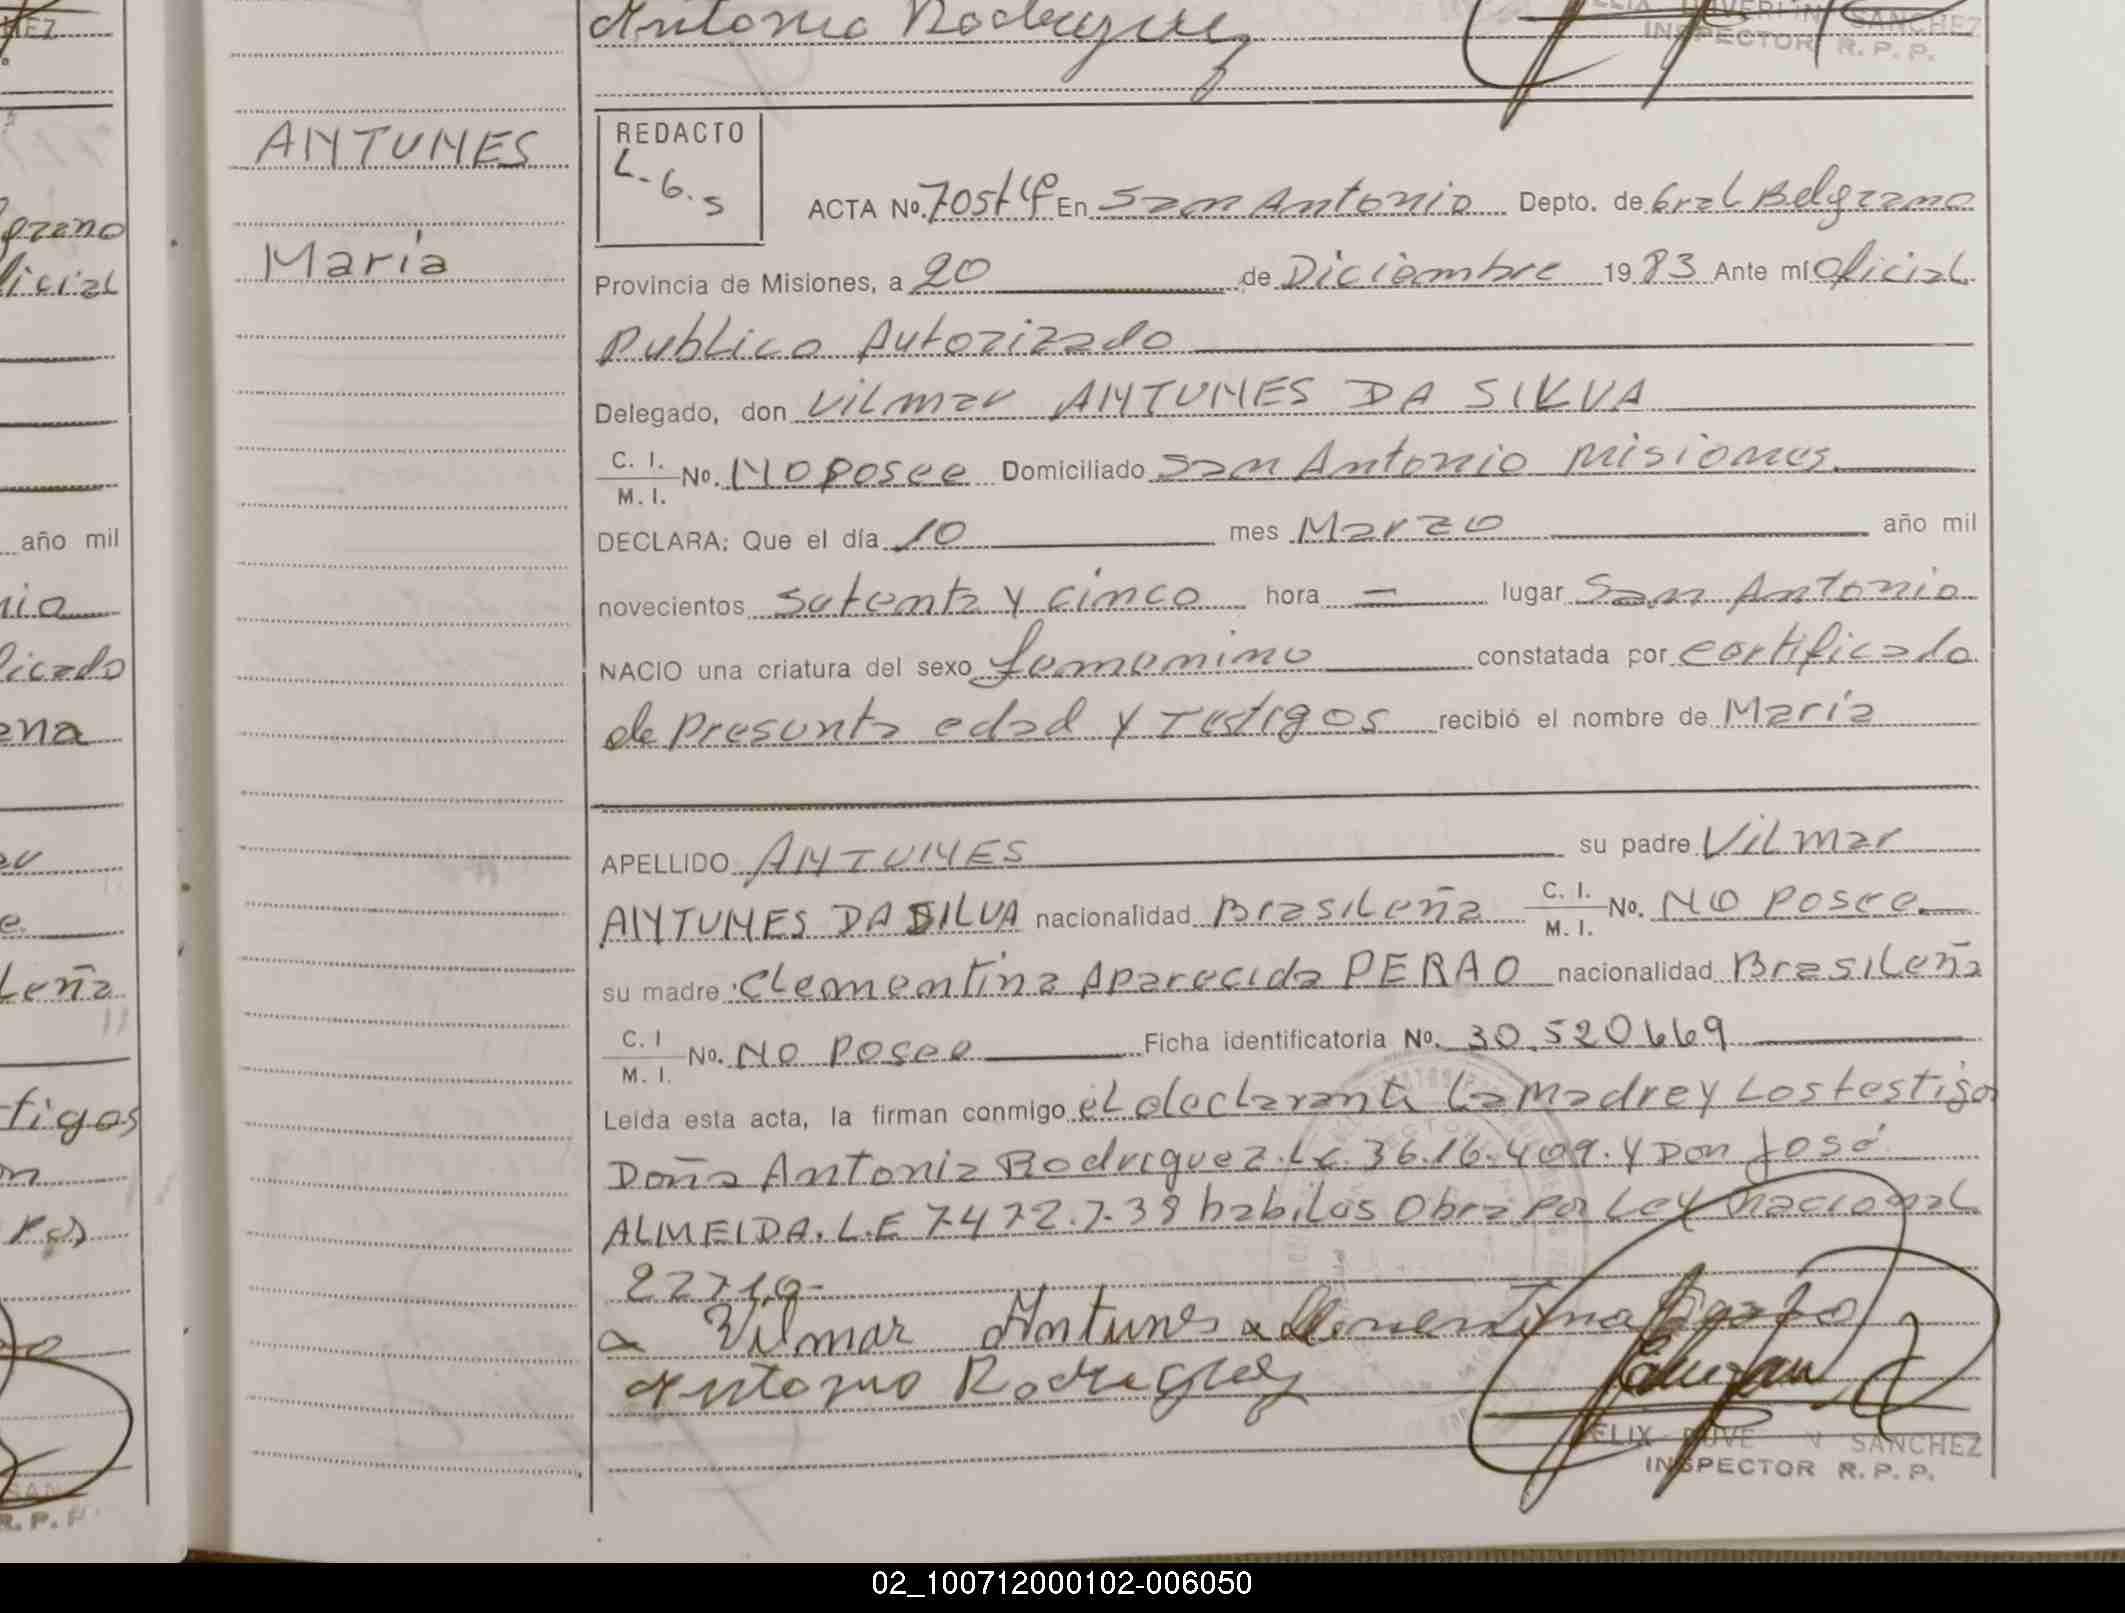 Antonio Rodriguez
SANCHEZ
INSPECTOR R. P. P.
ANTUNES
María
REDACTO
L-G.S
ACTA Nº. En San Antonio Depto. de Gral Belgrano
Provincia de Misiones, a 20 de Diciembre 1983 Ante mí Oficial
Publico Autorizado
Delegado, don Vilmar ANTUNES DA SILVA
C. I.
M. I.
No. No posee Domiciliado San Antonio Misiones
DECLARA: Que el día 10 mes Marzo año mil
novecientos setenta y cinco hora — lugar San Antonio
NACIO una criatura del sexo femenino constatada por certificado
de Presunta edad y Testigos recibió el nombre de María
APELLIDO ANTUNES su padre Vilmar
ANTUNES DA SILVA nacionalidad Brasileña C. I. M. I. No. No Posee
su madre Clementina Aparecida PERAO nacionalidad Brasileña
C. I M. I. No. No Posee Ficha identificatoria No. 30.520669
Leida esta acta, la firman conmigo el declarante La Madre y Los testigos
Doña Antonia Rodriguez. L.C. 36.16.409. y Don José
ALMEIDA. L.E 7472.738 habiles Obra por Ley Nacional
22710-
Vilmar Antunes
Antonio Rodriguez
FELIX SANCHEZ
INSPECTOR R. P. P.
grano
licial
año mil
nio
licado
ena
leña
tigos
R. P. P.
02_100712000102-006050